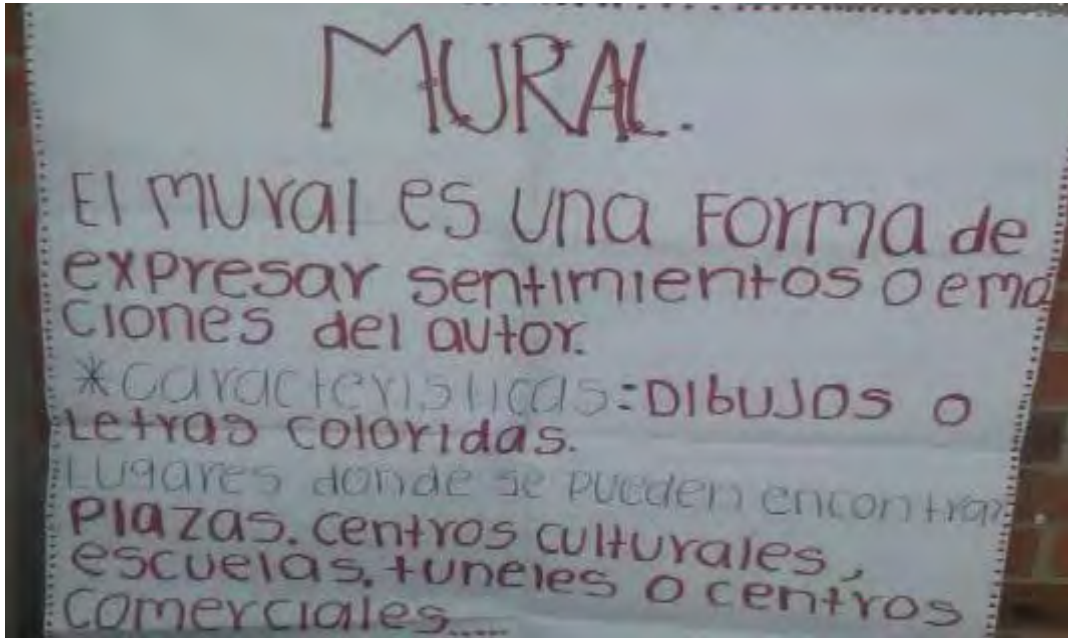 MURAL.
El mural es una Forma de
expresar sentimientos o emo
ciones del autor.
*Características: DIbUJOS o
Letras coloridas.
Lugares donde se pueden encontrar
Plazas. centros culturales,
escuelas. tuneles o centros
comerciales.....